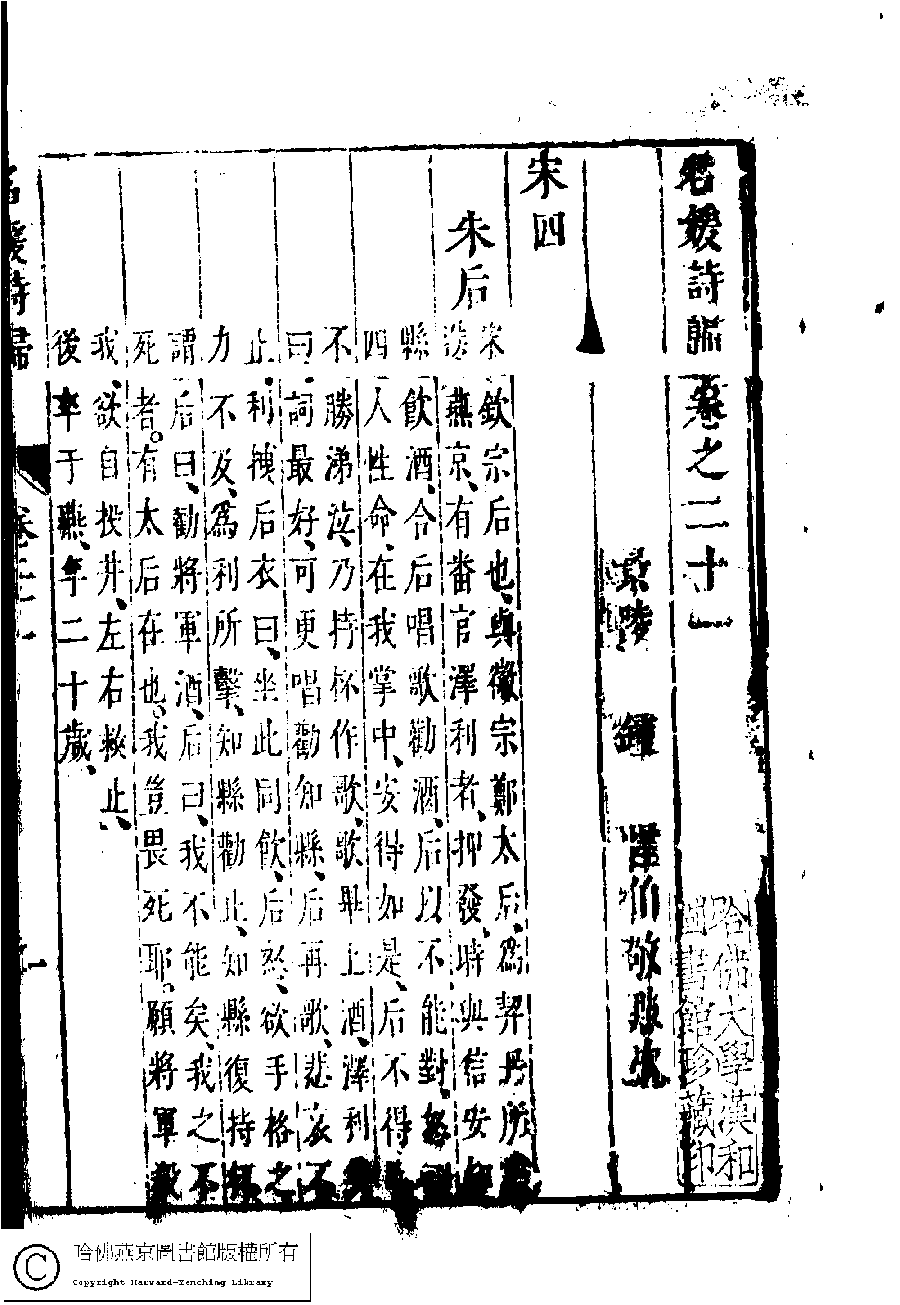 名媛詩歸卷之二十一
哈佛大學漢和
圖書館珍藏印
景陵 鍾 惺伯敬點次
宋四
朱后
宋欽宗后也、與徽宗鄭太后、爲契丹所
燕京、有畨官澤利者、押發、時與信安知
縣飲酒、令后唱歌勸酒、后以不能對、怒
四人性命、在我掌中、安得如是、后不得
不勝涕泣、乃持杯作歌、歌畢上酒、澤利
曰、詞最好、可更唱勸知縣、后再歌、悲哀不
止、利拽后衣曰、坐此同飲、后怒、欲手格之
力不及、爲利所擊、知縣勸止、知縣復持杯
謂后曰、勸將軍酒、后曰、我不能矣、我之不
死者。有太后在也、我豈畏死耶。願將軍殺
我、欲自投井、左右救止、
後卒于燕、年二十歲、
名媛詩歸 卷二十一 一
哈佛燕京圖書館版權所有
Copyright Harvard-Yenching Library